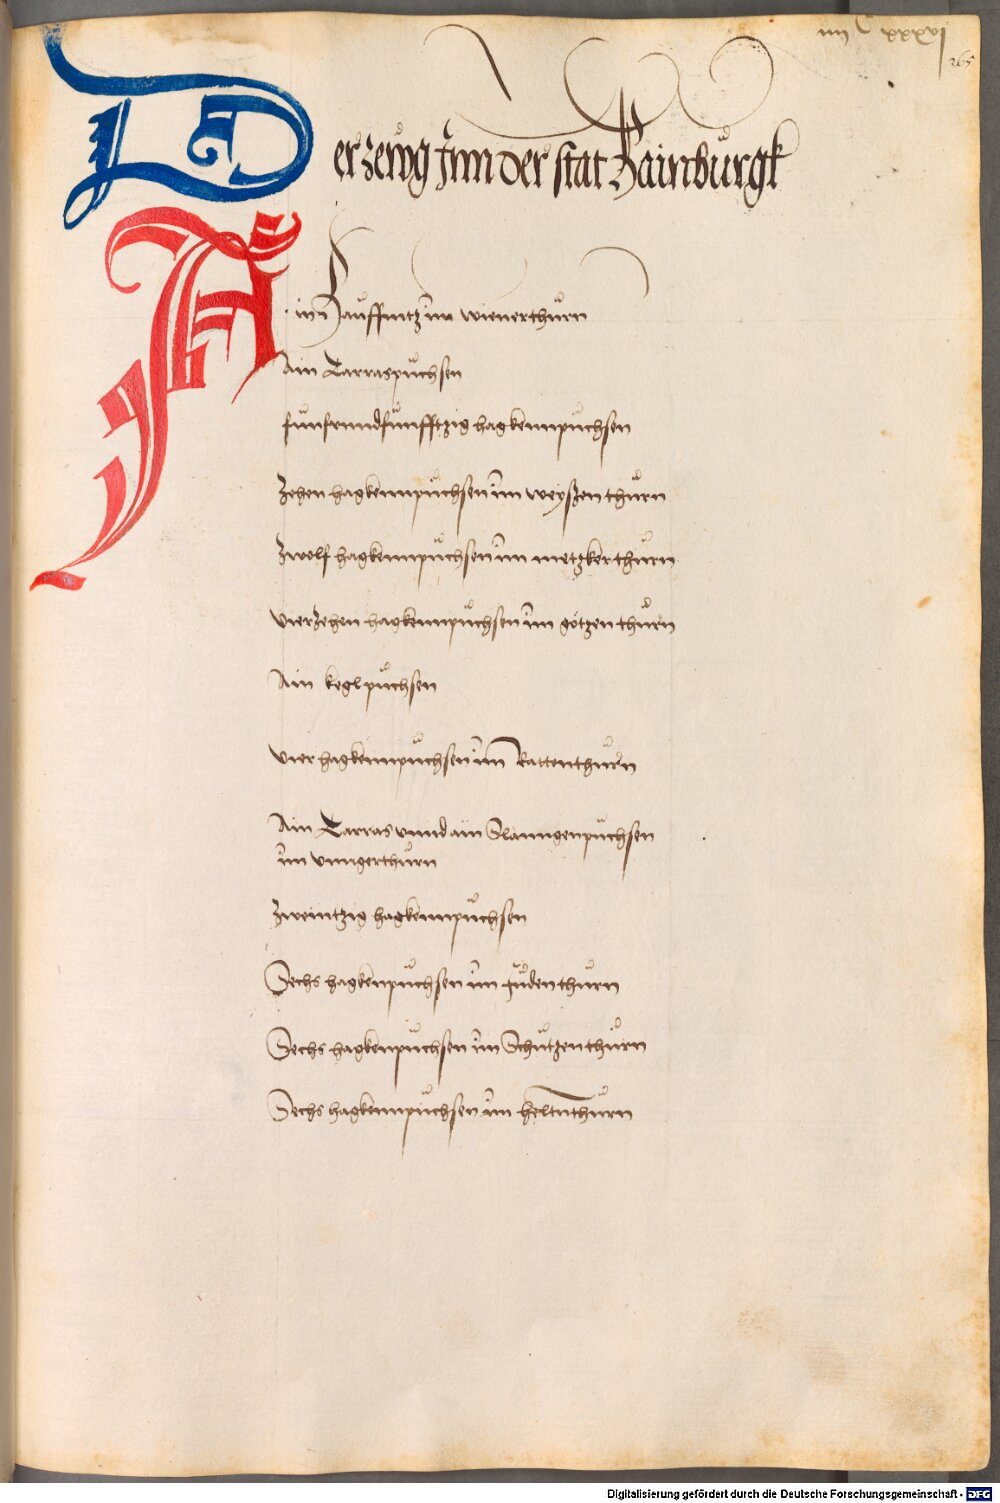 iiij C xxxvj
265
Der zewg Jnn der stat Hainburgk
Ain Hauffnitz im wienerthurn
Ain Tarraspuchsen
funfunndfunfftzig hagkennpuchsen
Zehen hagkennpuchsen im weyssen thurn
Zwolf hagkennpuchsen im metzkerthurn
vierzehen hagkennpuchsen im götzen thurn
Ain keglpuchsen
vier hagkennpuchsen im Rattenthurn
Ain Tarras vnnd ain Slanngenpuchsen
im vnngerthurn
Zweintzig hagkennpuchsen
Sechs hagkenpuchsen im Judenthurn
Sechs hagkenpuchsen im Schutzenthurn
Sechs hagkennpuchsen im heltnthurn
Digitalisierung gefördert durch die Deutsche Forschungsgemeinschaft - DFG